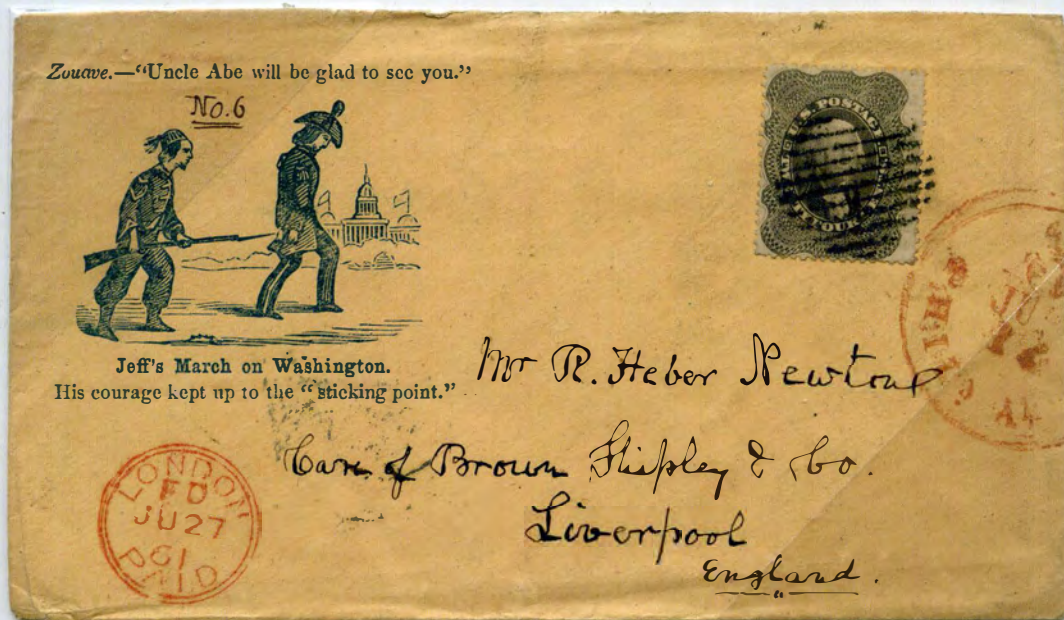 Zouave.—“Uncle Abe will be glad to see you.”
No. 6
Jeff's March on Washington.
His courage kept up to the “sticking point.”
Mr R. Heber Newton
Care of Brown Shipley & Co.
Liverpool
England.
LONDON
JU 27
61
PAID
U.S. POSTAGE